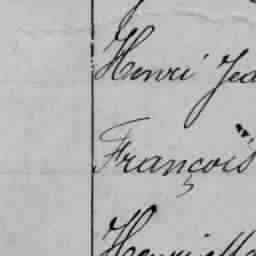 Henri Jea
François
Henriette